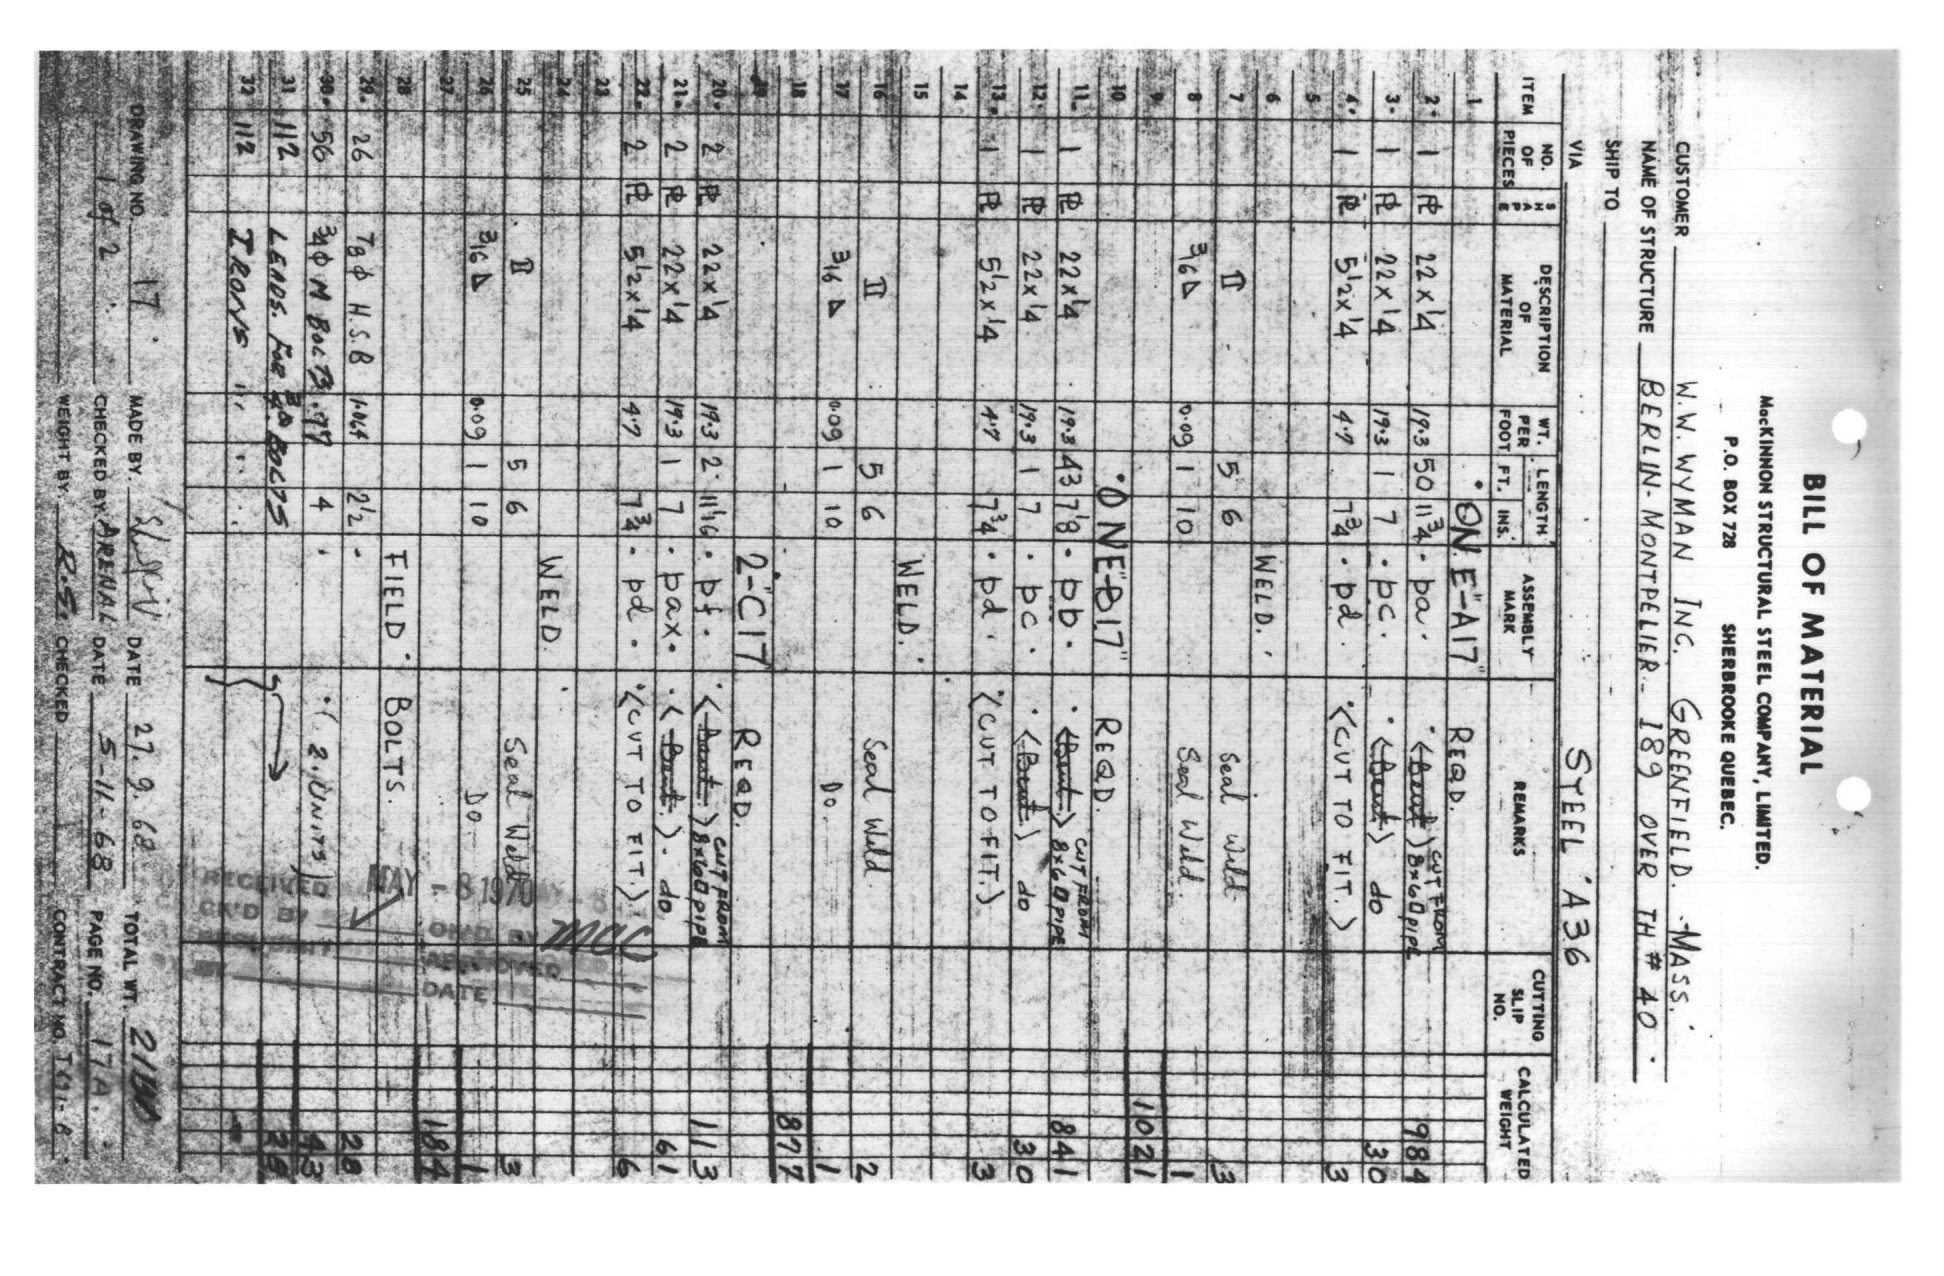 BILL OF MATERIAL
MacKINNON STRUCTURAL STEEL COMPANY, LIMITED.
P.O. BOX 728 SHERBROOKE QUEBEC.
CUSTOMER W.W. WYMAN INC. GREENFIELD. MASS.
NAME OF STRUCTURE BERLIN-MONTPELIER. 189 OVER TH # 40.
SHIP TO
VIA STEEL A36
ITEM NO. OF PIECES SHAPE DESCRIPTION OF MATERIAL WT. PER FOOT LENGTH FT. INS. ASSEMBLY MARK REMARKS CUTTING SLIP NO. CALCULATED WEIGHT
1. "ONE-A17" REQD.
2. 1 PL 22x1/4 19.3 50 11 3/4 pa. (Bent) CUT FROM 8x60 PIPE 984
3. 1 PL 22x1/4 19.3 1 7 pc. (Bent) do 30
4. 1 PL 5 1/2x1/4 4.7 7 3/4 pd. (CUT TO FIT.) 3
5
6 WELD.
7 II 5 6 Seal Weld 3
8 3/16 0.09 1 10 Seal Weld. 1
9 1021
10 "ONE-B17" REQD.
11 1 PL 22x1/4 19.3 43 7 1/8 pb. (Bent) CUT FROM 8x60 PIPE 841
12. 1 PL 22x1/4 19.3 1 7 pc. (Bent) do 30
13. 1 PL 5 1/2x1/4 4.7 7 3/4 pd. (CUT TO FIT.) 3
14
15 WELD.
16 II 5 6 Seal Weld. 2
17 3/16 0.09 1 10 Do. 1
18 877
19 2-"C17" REQD.
20. 2 PL 22x1/4 19.3 2 11 1/16 pf. (Bent.) CUT FROM 8x60 PIPE 113
21. 2 PL 22x1/4 19.3 1 7 pax. (Bent.) do 61
22. 2 PL 5 1/2x1/4 4.7 7 3/4 pd. (CUT TO FIT.) 6
23
24 WELD.
25 II 5 6 Seal Weld 3
26 3/16 0.09 1 10 Do 1
27 184
28 FIELD BOLTS.
29. 26 7/8 Φ H.S.B 1.064 2 1/2 28
30. 56 3/4 Φ M BOLTS .77 4 (2 UNITS) 43
31 112 LEADS. FOR 3/4 Φ BOLTS 28
32 112 IRONS " "
RECEIVED MAY -8 1970
CK'D BY
APPROVED
DATE
DRAWING NO. 17 MADE BY. DATE 27.9.68 TOTAL WT.
1 of 2 CHECKED BY ARENAL DATE 5-11-68 PAGE NO. 17A.
WEIGHT BY. R.S. CHECKED CONTRACT NO.